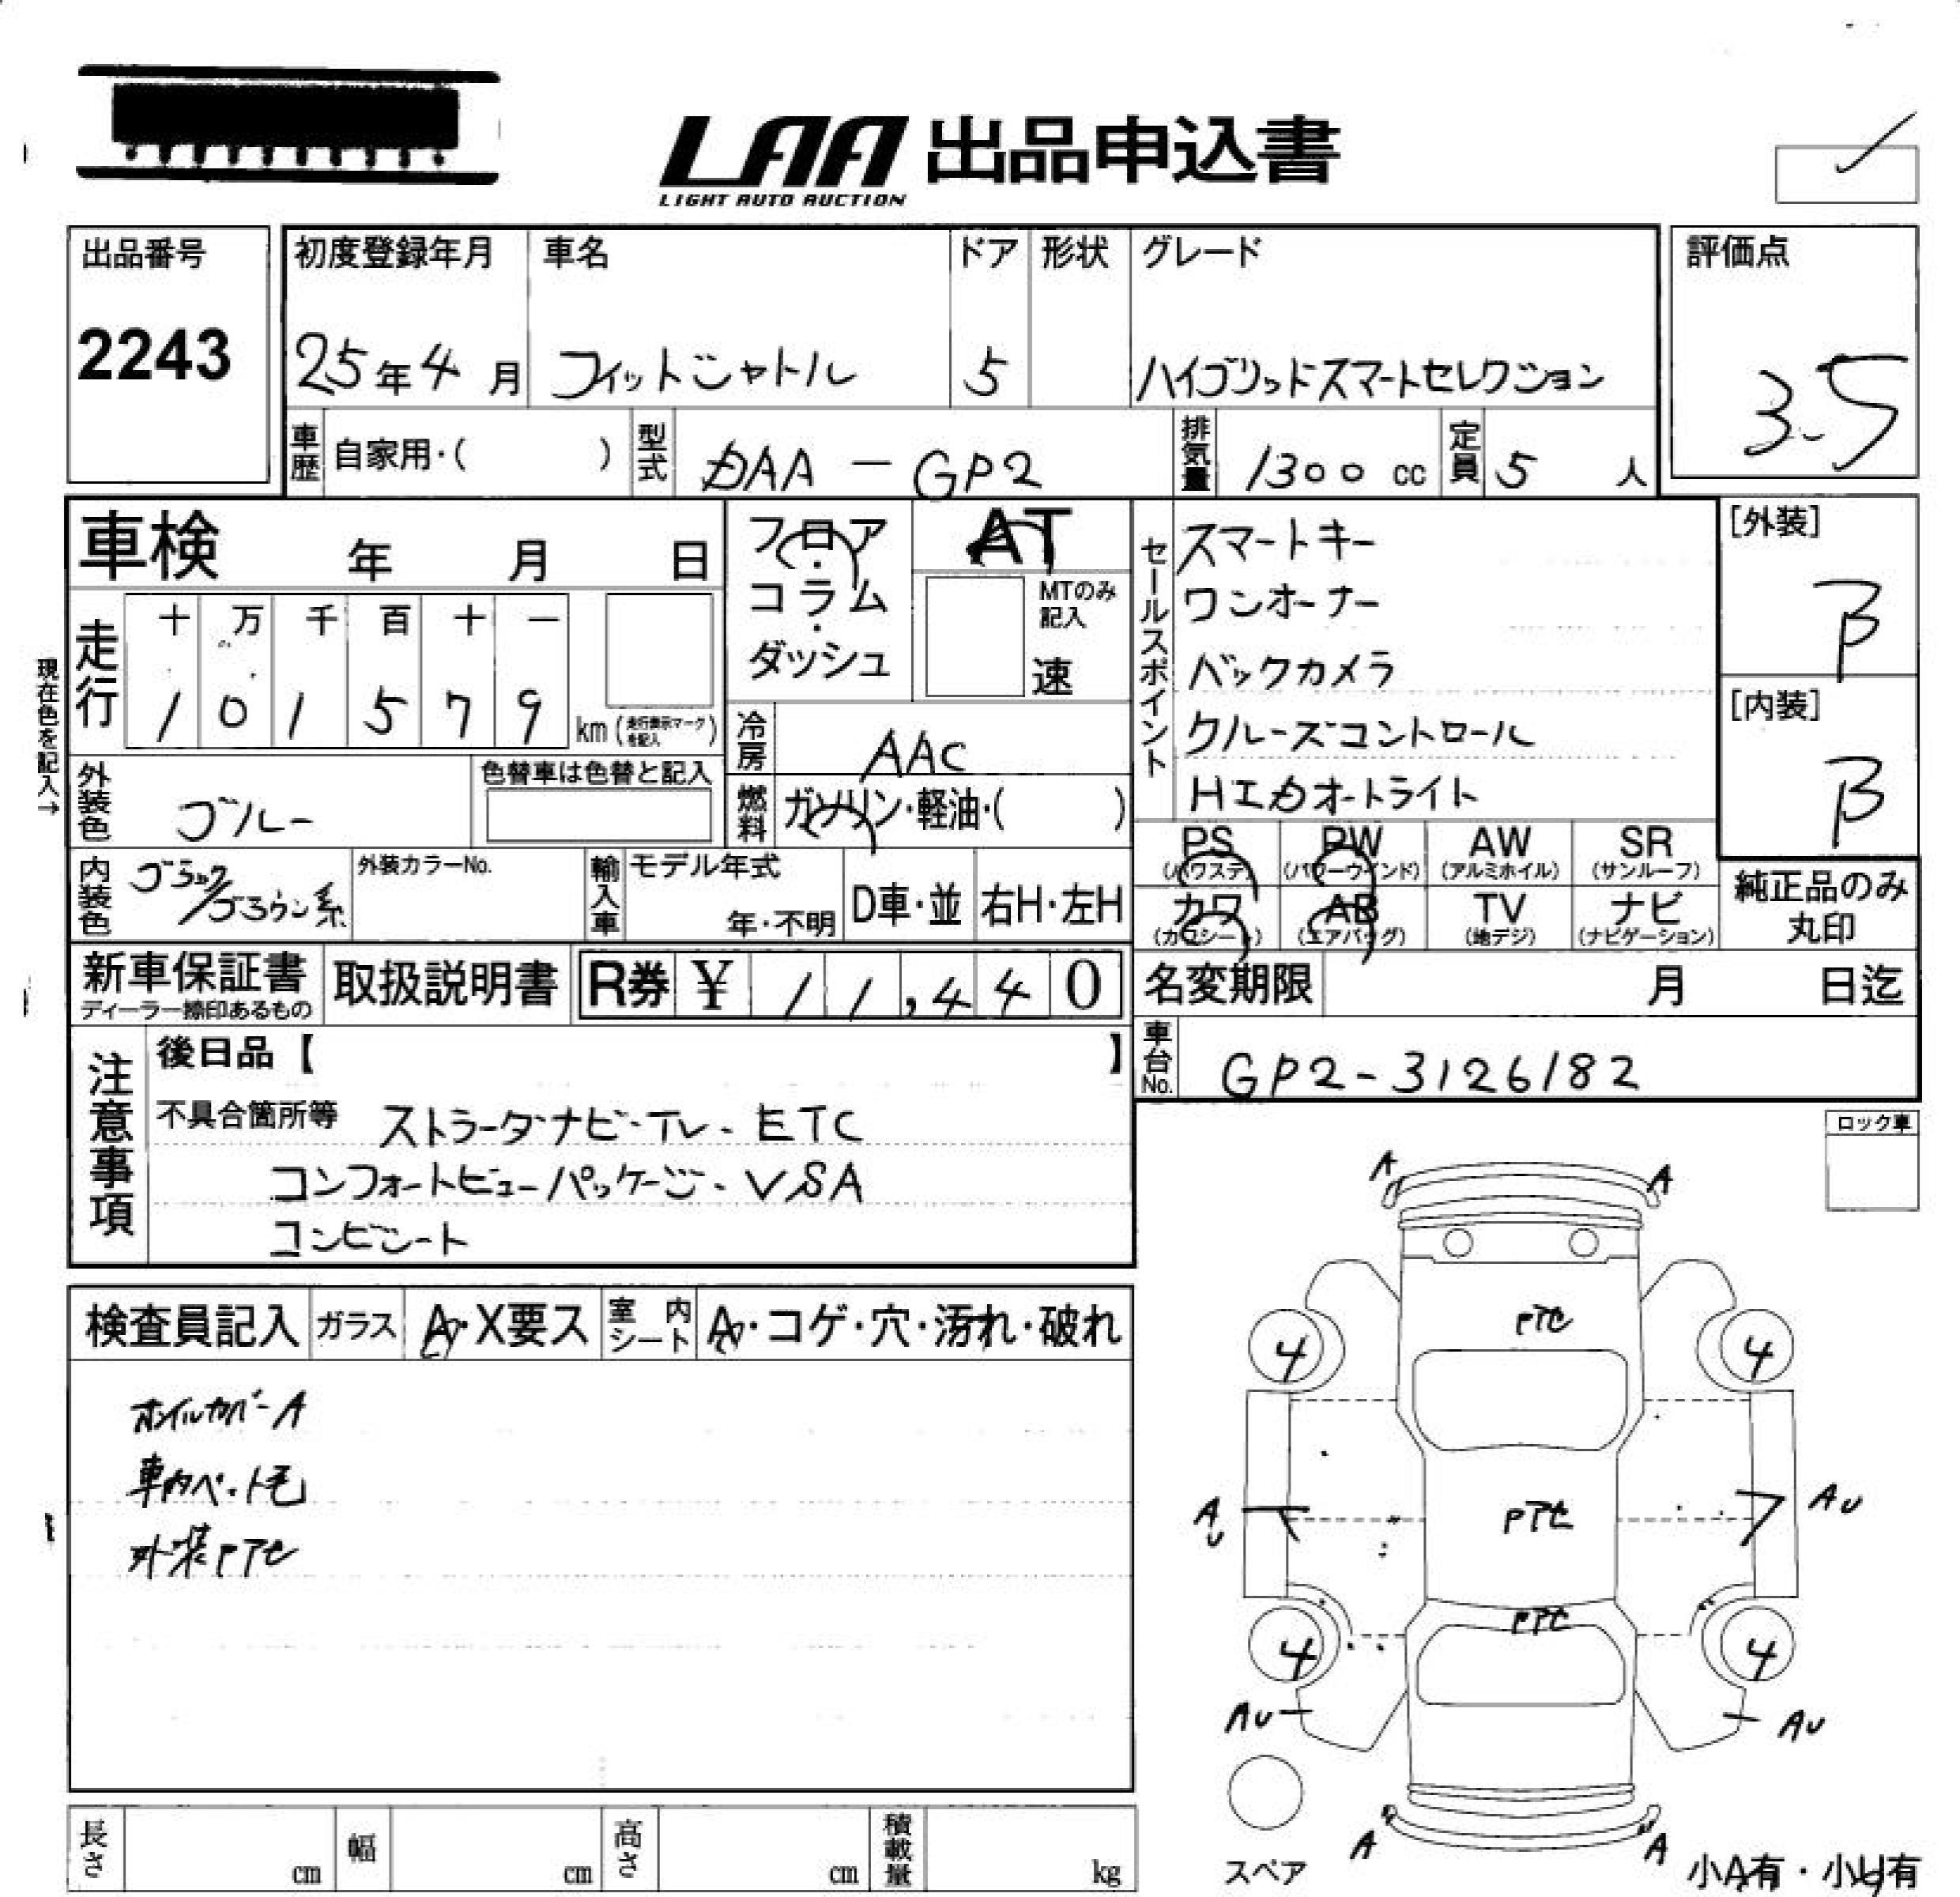 LAA 出品申込書
LIGHT AUTO AUCTION
出品番号
2243
初度登録年月
25年4月
車名
フィットシャトル
ドア
5
形状
グレード
ハイブリッドスマートセレクション
評価点
3.5
車歴 自家用・( )
型式 DAA-GP2
排気量 1300 cc
定員 5 人
車検 年 月 日
フロア・コラム・ダッシュ
AT
MTのみ記入
速
現在色を記入→
走行
十 万 千 百 十 一
1 0 1 5 7 9 km (走行表示マークを記入)
冷房 AAC
燃料 ガソリン・軽油・( )
外装色 ブルー
色替車は色替と記入
内装色 ブラック/ブラウン系
外装カラーNo.
輸入車 モデル年式
年・不明
D車・並
右H・左H
セールスポイント
スマートキー
ワンオーナー
バックカメラ
クルーズコントロール
HIDオートライト
[外装]
B
[内装]
B
PS (パワステ) PW (パワーウインド) AW (アルミホイル) SR (サンルーフ)
カワ (カワシート) AB (エアバッグ) TV (地デジ) ナビ (ナビゲーション)
純正品のみ丸印
新車保証書
ディーラー捺印あるもの
取扱説明書
R券 ¥ 11,440
名変期限 月 日迄
車台No. GP2-3126182
注意事項
後日品【 】
不具合箇所等 ストラーダナビ・TV・ETC
コンフォートビューパッケージ・VSA
コンビシート
ロック車
検査員記入
ガラス A・X要ス
室内シート A・コゲ・穴・汚れ・破れ
ホイルカバーA
車内ペット毛
外装PTセ
A A
PTセ
4 4
AU PTセ AU
PTセ
4 4
AU AU
A A
スペア
小A有・小U有
長さ cm
幅 cm
高さ cm
積載量 kg